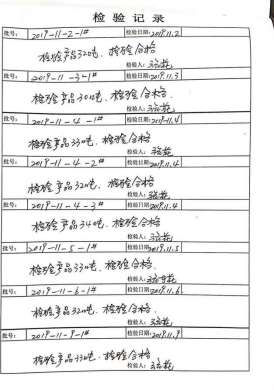 检验记录
批号: 2019-11-2-1# 检验日期: 2019.11.2
检验产品320吨，检验合格
检验人:
批号: 2019-11-3-1# 检验日期: 2019.11.3
检验产品300吨，检验合格
检验人:
批号: 2019-11-4-1# 检验日期: 2019.11.4
检验产品330吨，检验合格.
检验人:
批号: 2019-11-4-2# 检验日期: 2019.11.4
检验产品320吨，检验合格
检验人:
批号: 2019-11-4-3# 检验日期: 2019.11.4
检验产品340吨，检验合格.
检验人:
批号: 2019-11-5-1# 检验日期: 2019.11.5
检验产品330吨，检验合格.
检验人:
批号: 2019-11-6-1# 检验日期: 2019.11.6
检验产品320吨，检验合格.
检验人:
批号: 2019-11-9-1# 检验日期: 2019.11.9
检验产品330吨，检验合格.
检验人: